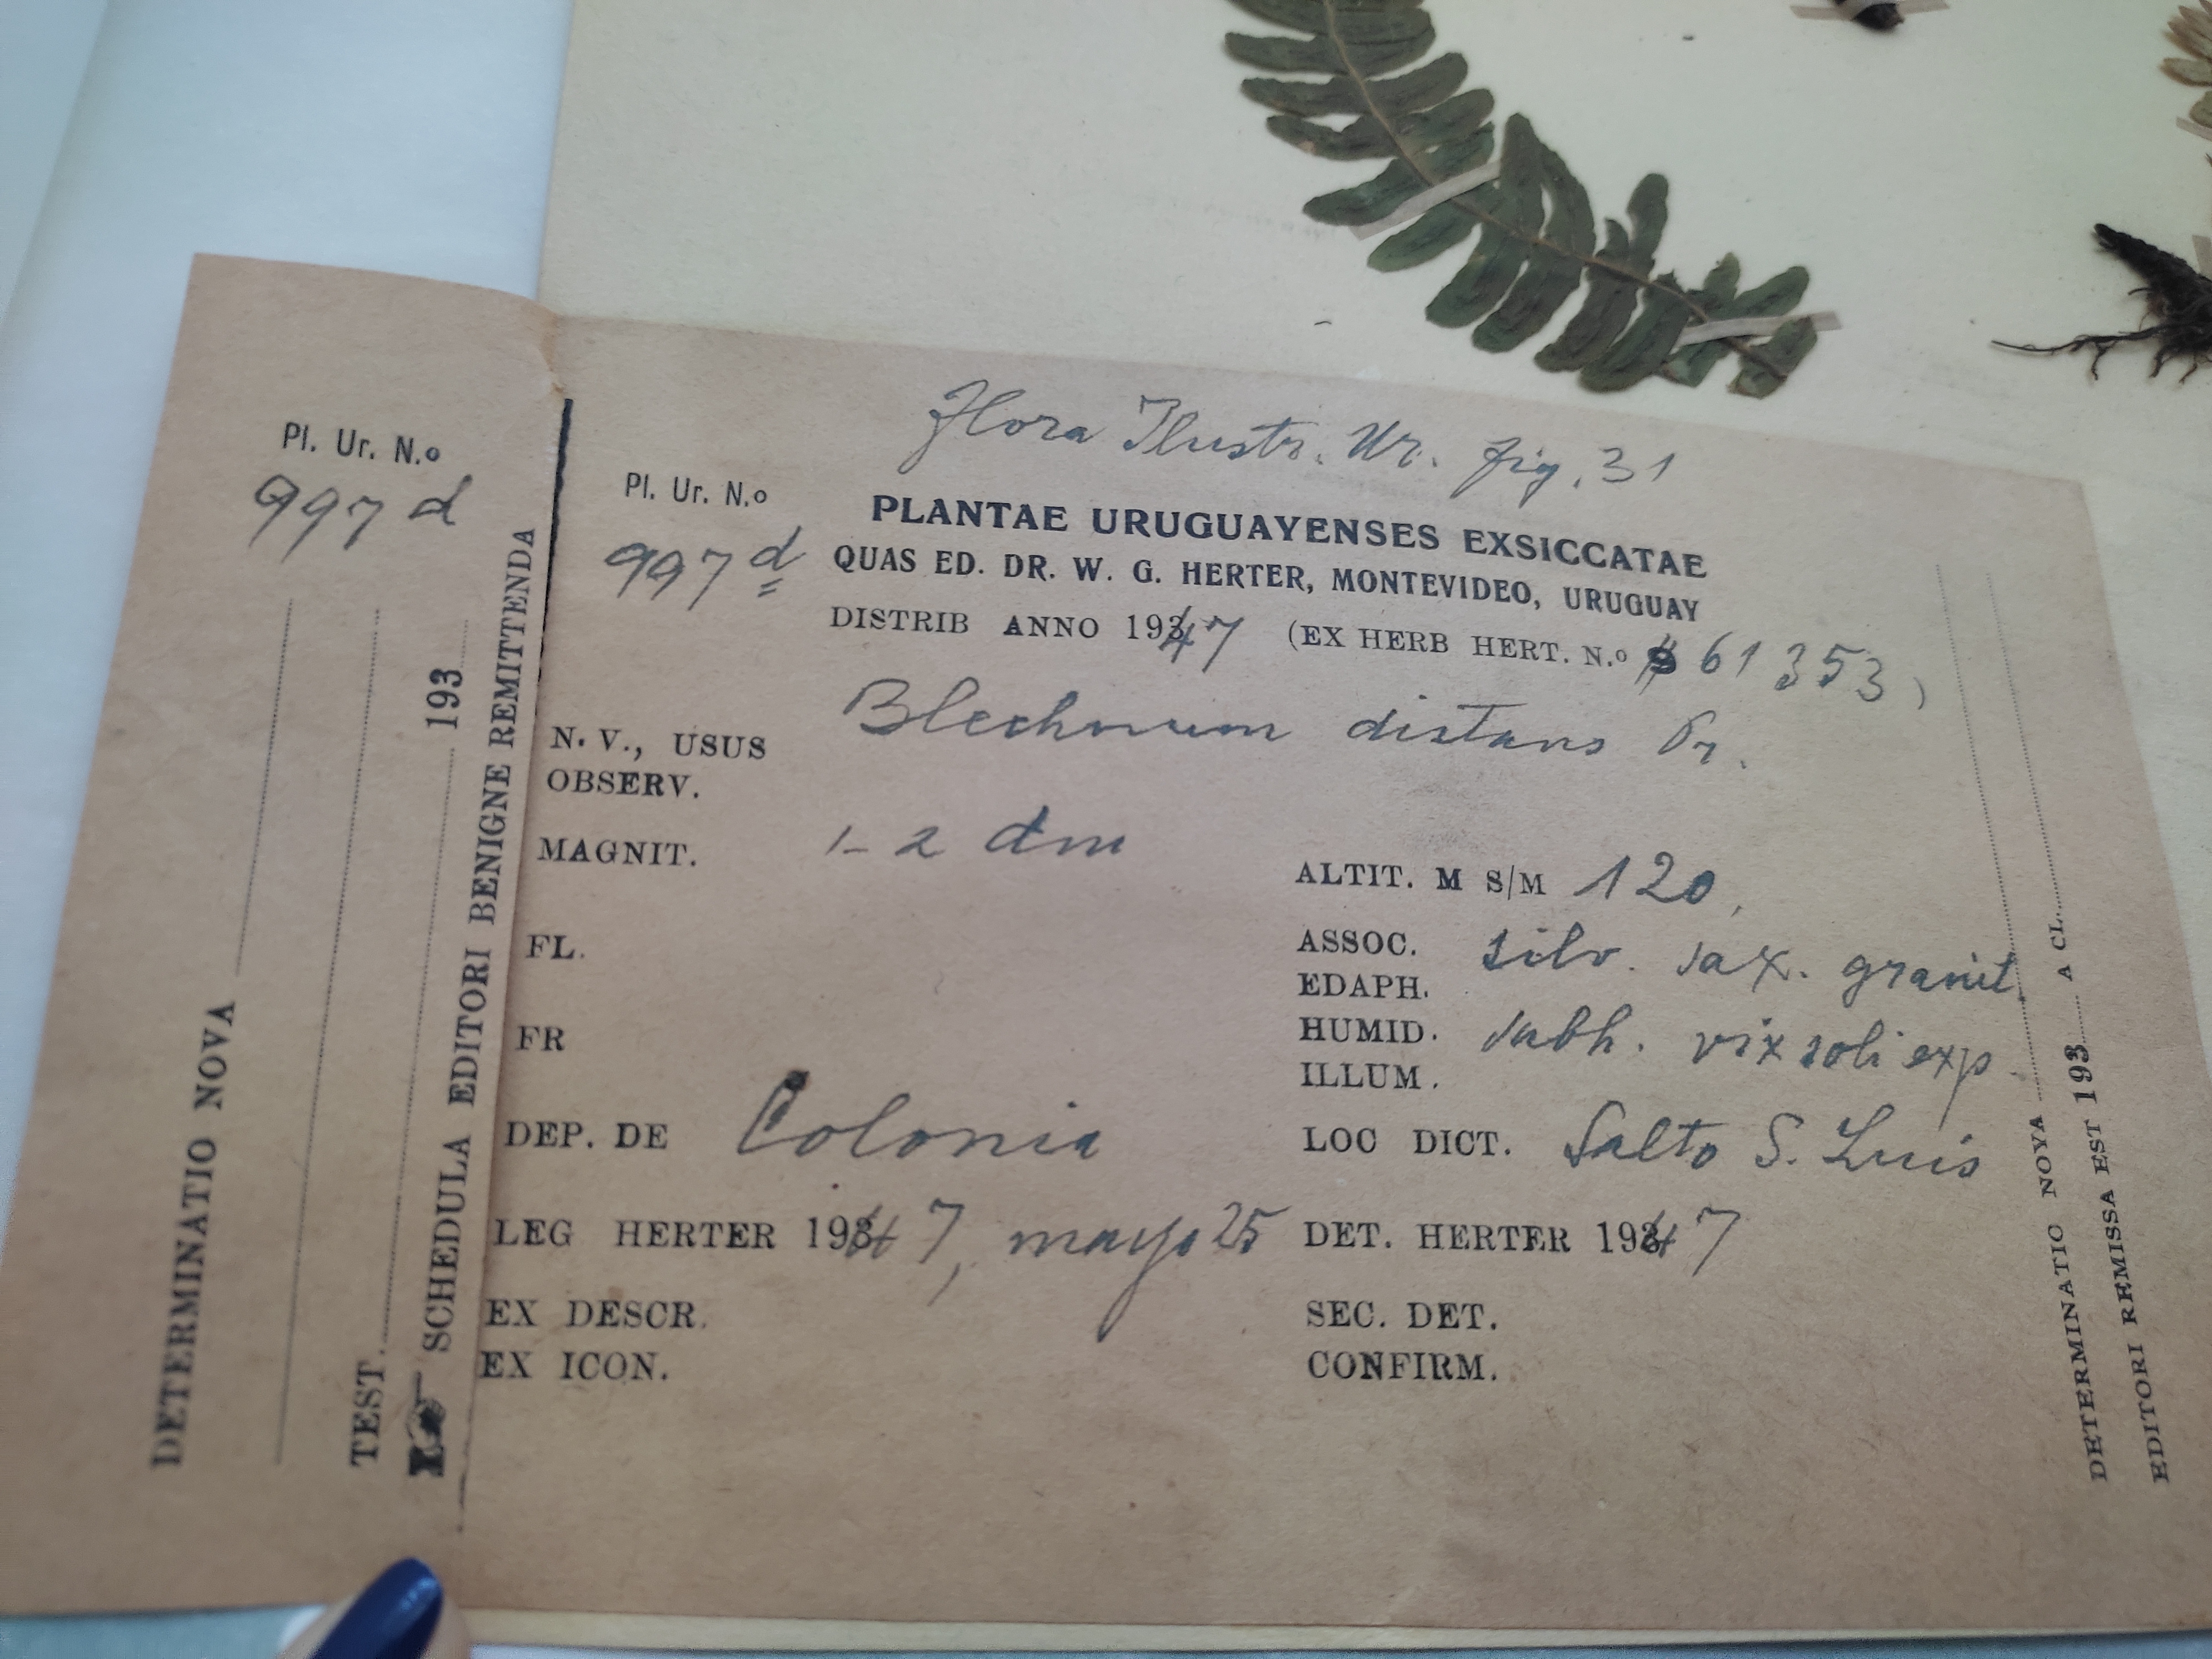 Pl. Ur. N.o
997 d
DETERMINATIO NOVA
TEST.
193
SCHEDULA EDITORI BENIGNE REMITTENDA
Flora Ilustr. Ur. fig. 31
Pl. Ur. N.o
997 d
PLANTAE URUGUAYENSES EXSICCATAE
QUAS ED. DR. W. G. HERTER, MONTEVIDEO, URUGUAY
DISTRIB ANNO 1947 (EX HERB HERT. N.o 61353)
Blechnum distans Pr.
N. V., USUS
OBSERV.
MAGNIT. 1-2 dm
ALTIT. M S/M 120,
FL.
ASSOC. silv. sax. granit.
EDAPH.
FR
HUMID. subh. vix soli exp.
ILLUM.
DEP. DE Colonia
LOC DICT. Salto S. Luis
LEG HERTER 1947, mayo 25
DET. HERTER 1947
EX DESCR.
SEC. DET.
EX ICON.
CONFIRM.
DETERMINATIO NOVA A CL.
EDITORI REMISSA EST 193